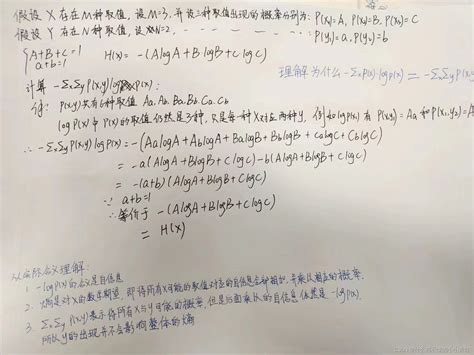 假设 X 存在M种取值, 设 M=3, 并设三种取值出现的概率分别为: P(X₁)=A, P(X₂)=B, P(X₃)=C
假设 Y 存在N种取值, 设 N=2, P(Y₁)=a, P(Y₂)=b
{A+B+C=1
a+b=1
H(X)= -(AlogA+BlogB+ClogC)
理解为什么 -ΣₓP(X)·logP(X) = -ΣₓΣy P(X,Y)
计算 -ΣₓΣy P(X,Y) log P(X):
P(X,Y) 共有6种取值 Aa. Ab. Ba. Bb. Ca. Cb
logP(X)中P(X)的取值仍然是三种, 只是每一种X对应两种Y, 例如logP(X₁)有 P(X₁,Y₁)=Aa 和 P(X₁,Y₂)=A
∴ -ΣₓΣy P(X,Y) logP(X) = -(AalogA+AblogA+BalogB+BblogB+CalogC+CblogC)
= -a(AlogA+BlogB+ClogC)-b(AlogA+BlogB+ClogC)
= -(a+b)(AlogA+BlogB+ClogC)
∵ a+b=1
∴ 等价于 -(AlogA+BlogB+ClogC)
= H(X)
从实际含义理解:
1. -logP(X)的含义是自信息
2. 熵是对X的数学期望, 即将所有X可能的取值对应的自信息全部相加, 并乘以相应的概率.
3. ΣₓΣy P(X,Y)表示将所有X与Y可能的概率, 但是后面乘以的自信息依然是 -logP(X).
所以Y的出现并不会影响整体的熵